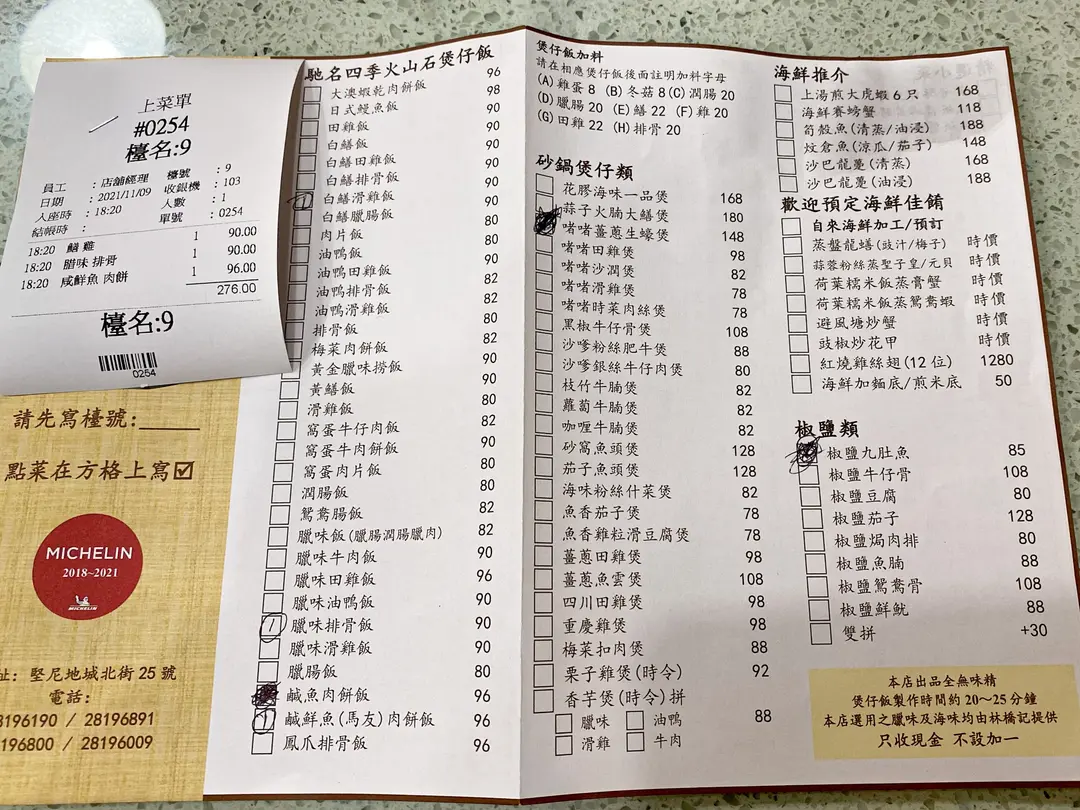 上菜單
#0254
檯名:9
員工 : 店舖經理 檯號 : 9
日期 : 2021/11/09 收銀機 : 103
入座時 : 18:20 人數 : 1
結帳時 : 單號 : 0254
18:20 鱔 雞 1 90.00
18:20 腊味 排骨 1 90.00
18:20 咸鮮魚 肉餅 1 96.00
276.00
檯名:9
0254
請先寫檯號:
點菜在方格上寫☑
MICHELIN
2018~2021
MICHELIN
址: 堅尼地城北街 25 號
電話:
8196190 / 28196891
196800 / 28196009
馳名四季火山石煲仔飯
大澳蝦乾肉餅飯 96
日式鰻魚飯 98
田雞飯 90
白鱔飯 90
白鱔田雞飯 90
白鱔排骨飯 90
白鱔滑雞飯 90
白鱔臘腸飯 90
肉片飯 80
油鴨飯 80
油鴨田雞飯 90
油鴨排骨飯 90
油鴨滑雞飯 90
排骨飯 80
梅菜肉餅飯 82
黃金臘味撈飯 90
黃鱔飯 90
滑雞飯 80
窩蛋牛仔肉飯 82
窩蛋牛肉餅飯 90
窩蛋肉片飯 80
潤腸飯 80
鴛鴦腸飯 82
臘味飯(臘腸潤腸臘肉) 82
臘味牛肉飯 90
臘味田雞飯 96
臘味油鴨飯 90
臘味排骨飯 90
臘味滑雞飯 90
臘腸飯 80
鹹魚肉餅飯 96
鹹鮮魚(馬友)肉餅飯 96
鳳爪排骨飯 96
煲仔飯加料
請在相應煲仔飯後面註明加料字母
(A) 雞蛋 8 (B) 冬菇 8 (C) 潤腸 20
(D) 臘腸 20 (E) 鱔 22 (F) 雞 20
(G) 田雞 22 (H) 排骨 20
砂鍋煲仔類
花膠海味一品煲 168
蒜子火腩大鱔煲 180
啫啫薑蔥生蠔煲 148
啫啫田雞煲 98
啫啫沙潤煲 82
啫啫滑雞煲 78
啫啫時菜肉絲煲 78
黑椒牛仔骨煲 108
沙嗲粉絲肥牛煲 88
沙嗲銀絲牛仔肉煲 80
枝竹牛腩煲 82
蘿蔔牛腩煲 82
咖喱牛腩煲 82
砂窩魚頭煲 128
茄子魚頭煲 128
海味粉絲什菜煲 82
魚香茄子煲 78
魚香雞粒滑豆腐煲 78
薑蔥田雞煲 98
薑蔥魚雲煲 108
四川田雞煲 98
重慶雞煲 98
梅菜扣肉煲 88
栗子雞煲(時令) 92
香芋煲(時令)拼 88
臘味 油鴨
滑雞 牛肉
海鮮推介
上湯煎大虎蝦 6 只 168
海鮮賽螃蟹 118
筍殼魚(清蒸/油浸) 188
炆倉魚(涼瓜/茄子) 148
沙巴龍躉(清蒸) 168
沙巴龍躉(油浸) 188
歡迎預定海鮮佳餚
自來海鮮加工/預訂
蒸盤龍鱔(豉汁/梅子) 時價
蒜蓉粉絲蒸聖子皇/元貝 時價
荷葉糯米飯蒸膏蟹 時價
荷葉糯米飯蒸鴛鴦蝦 時價
避風塘炒蟹 時價
豉椒炒花甲 時價
紅燒雞絲翅(12 位) 1280
海鮮加麵底/煎米底 50
椒鹽類
椒鹽九肚魚 85
椒鹽牛仔骨 108
椒鹽豆腐 80
椒鹽茄子 128
椒鹽焗肉排 80
椒鹽魚腩 88
椒鹽鴛鴦骨 108
椒鹽鮮魷 88
雙拼 +30
本店出品全無味精
煲仔飯製作時間約 20～25 分鐘
本店選用之臘味及海味均由林橋記提供
只收現金 不設加一